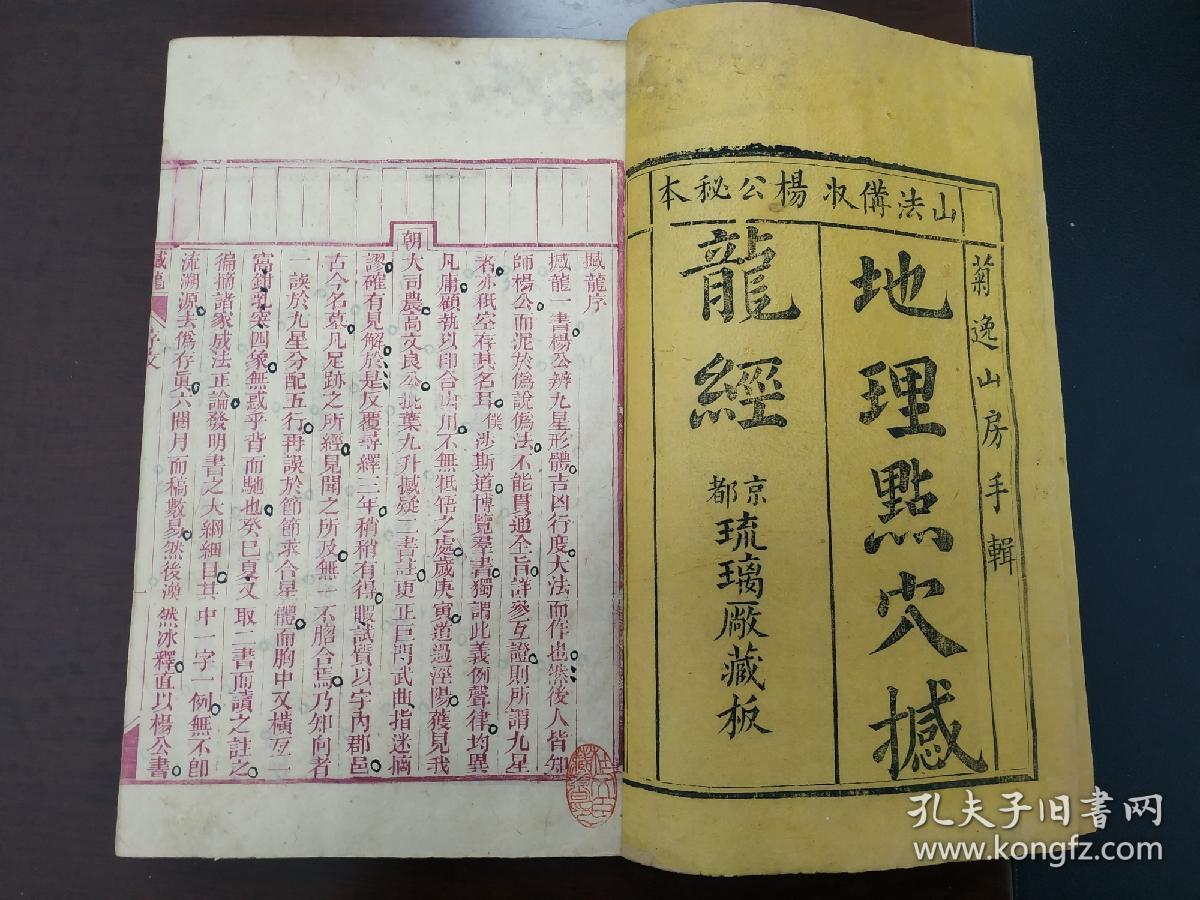 山法備收楊公秘本
菊逸山房手輯
地理點穴撼
龍經
京都
琉璃厰藏板
撼龍序
撼龍一書楊公辨九星形體吉凶行度大法而作也然後人皆知
師楊公而泥於僞說僞法不能貫通全旨詳參互證則所謂九星
者亦祇空存其名耳僕涉斯道博覽羣書獨謂此義例聲律均異
凡庸顧執以印合山川不無牴牾之處歲庚寅道過涇陽獲見我
朝大司農高文良公批葉九升撼疑二書註東正巨門武曲指迷摘
謬確有見解於是反覆尋繹三年稍稍有得暇試質以宇內郡邑
古今名墓凡足跡之所經見聞之所及無一不脗合焉乃知向者
一誤於九星分配五行再誤於節節求合星體而胸中又橫亙二
窩鉗乳突四象無惑乎背而馳也癸巳夏又取二書而讀之註之
徧摘諸家成法正論發明書之大綱細目其中一字一例無不卽
流溯源去僞存眞六閱月而稿數易然後渙然冰釋直以楊公書
撼龍
孔夫子旧书网
www.kongfz.com